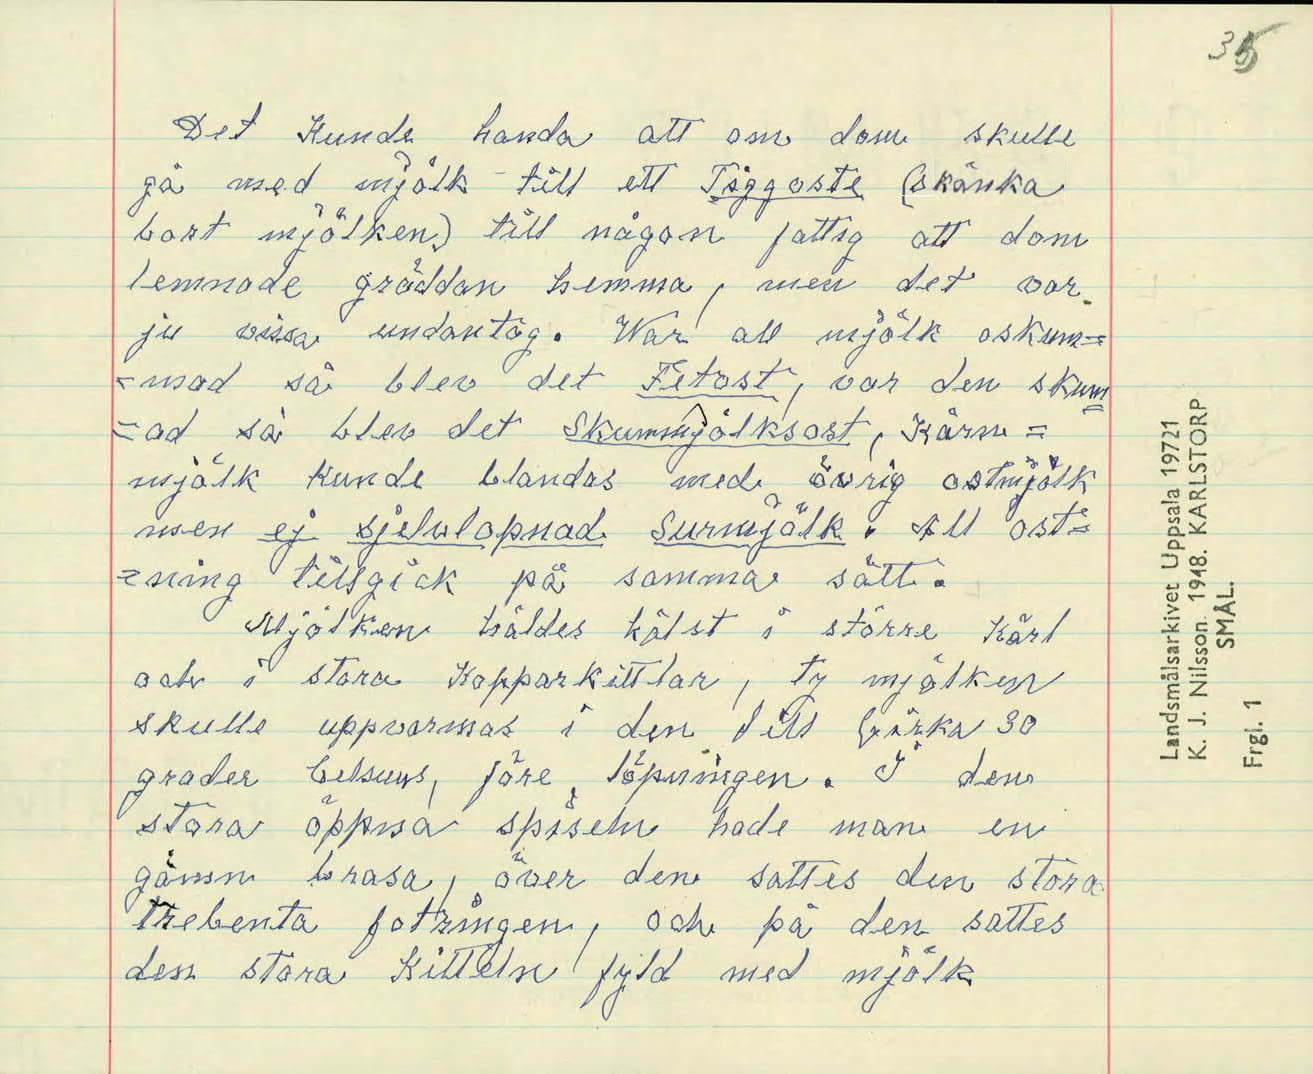 35
Det Kunde handa att om dom skulle
gå med mjölk till ett Tiggoste (skänka
bort mjölken) till någon fattig att dom
lemnade gräddan hemma, men det var
ju vissa undantag. War all mjölk oskum=
=mad så blev det Fetost, var den skum
=ad så blev det Skummjölksost, Kärn=
mjölk Kunde blandas med övrig ostmjölk
men ej sjelvlopnad Surmjölk. All ost=
=ning tillgick på samma sätt.
Mjölken häldes hälst i större Kärl
och i stora Kopparkittlar, ty mjölken
skulle uppvarmas i den till Cirka 30
grader Celsuus, före löpningen. I den
stora öppna spiseln hade man en
gämn brasa, över den sattes den stora
trebenta fotringen, och på den sattes
den stora Kitteln fyld med mjölk
Landsmålsarkivet Uppsala 19721
K. J. Nilsson. 1948. KARLSTORP
SMÅL.
Frgl. 1